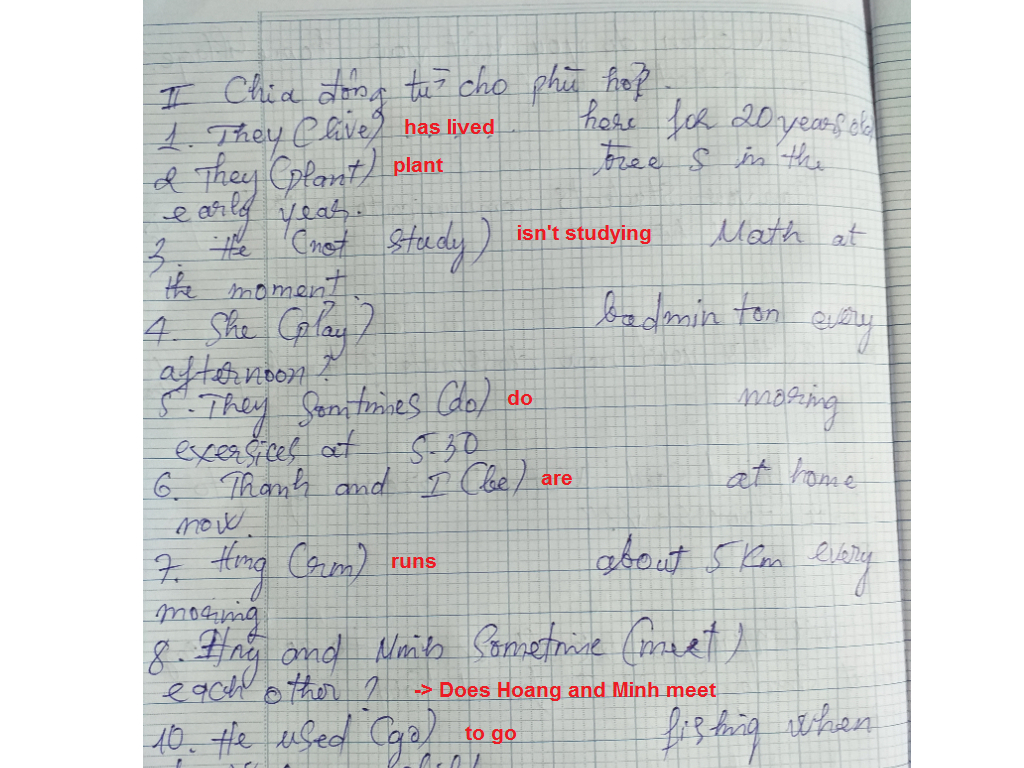 II Chia động từ cho phù hợp.
1. They (live) has lived here for 20 years old
2 They (plant) plant tree s in the
early years.
3. He (not study) isn't studying Math at
the moment.
4. She (play) badmin ton every
afternoon?
5. They Somtmies (do) do moring
exersices at 5.30
6. Thanh and I (be) are at home
now.
7. (run) runs about 5 km every
moring
8. and Sometmie (meet)
each other? -> Does Hoang and Minh meet
10. He used (go) to go fishing when